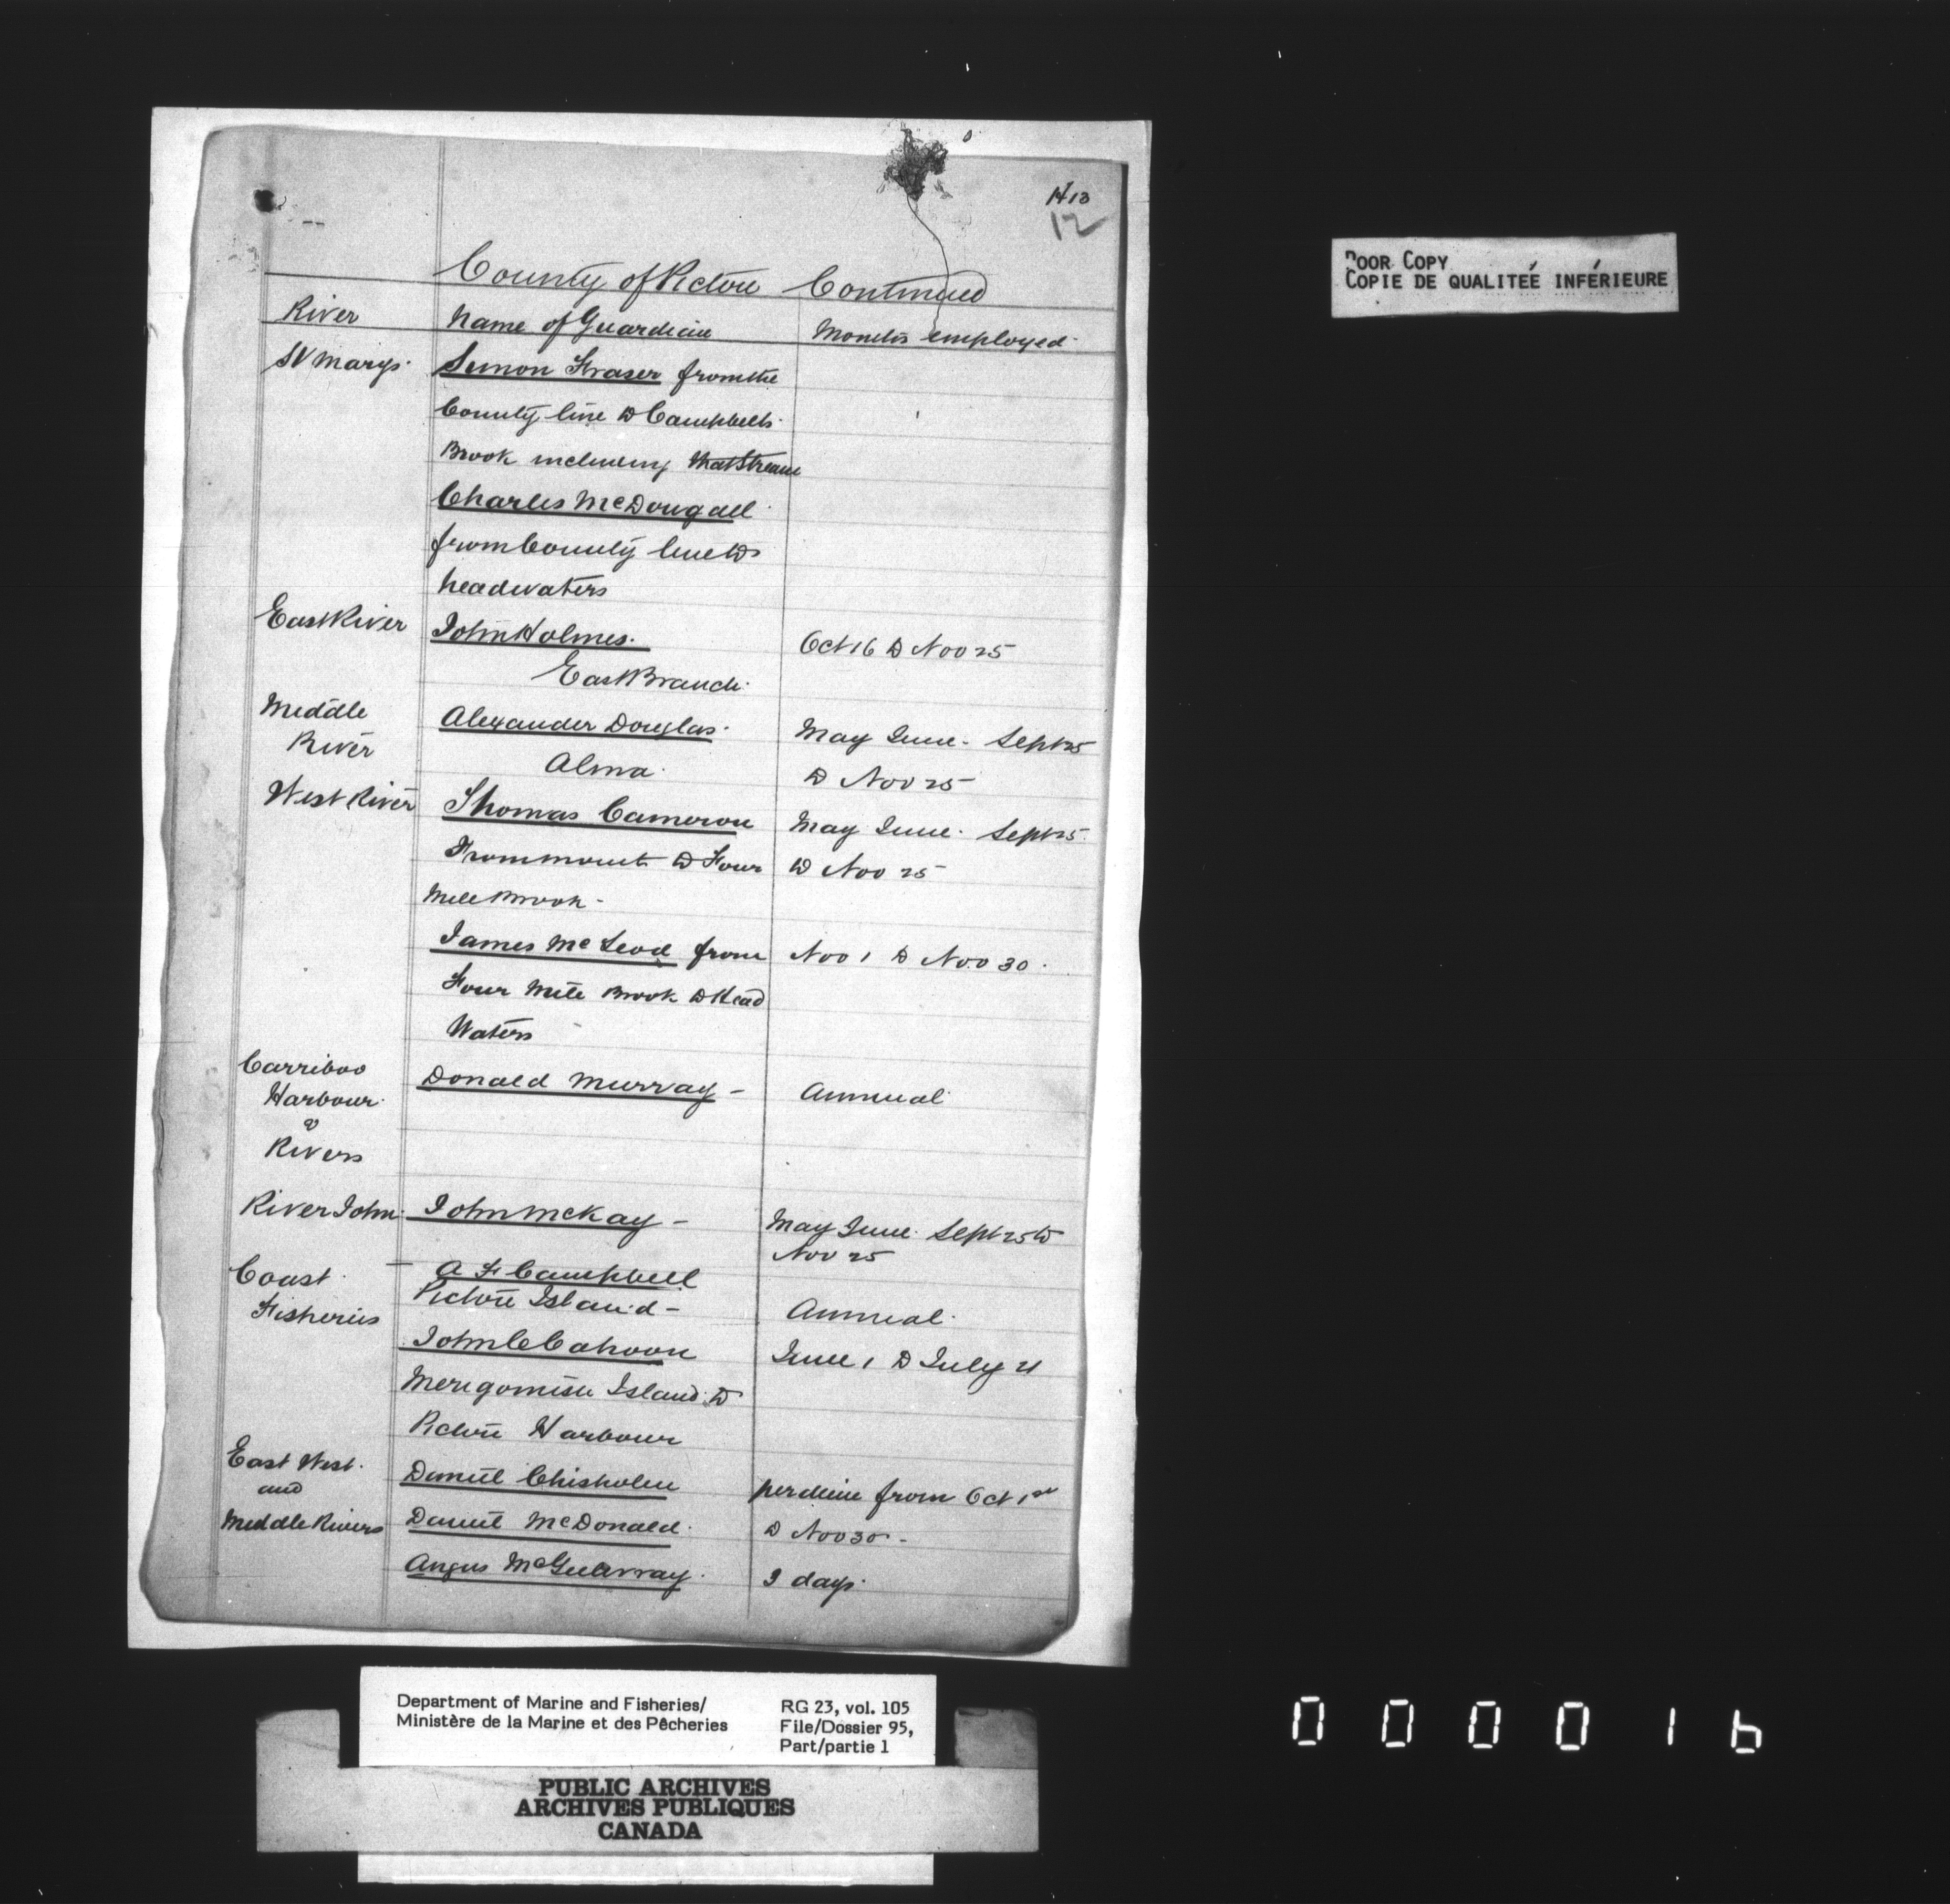 H13
12
County of Pictou Continued
River Name of Guardian Months employed
St Marys Simon Fraser from the
County line to Campbells
Brook including that Stream
Charles McDougall
from County line to
headwaters
East River John Holmes. Oct 16 to Nov 25
East Branch
Middle Alexander Douglas. May June. Sept 25
River Alma. to Nov 25
West River Thomas Cameron May June. Sept 25.
From mouth to Four to Nov 25
Mile Brook -
James McLeod from Nov 1 to Nov 30.
Four Mile Brook to Head
Waters
Carriboo Donald Murray - Annual
Harbour
&
Rivers
River John John McKay - May June. Sept 25 to
Nov 25
Coast A F Campbell
Fisheries Pictou Island - Annual.
John C Cahoon June 1 to July 21
Merigomish Island to
Pictou Harbour
East West. Daniel Chisholm per diem from Oct 1st
and
Middle Rivers Daniel McDonald. to Nov 30 -
Angus McGillivray. 3 days.
POOR COPY
COPIE DE QUALITEÉ INFÉRIEURE
Department of Marine and Fisheries/ RG 23, vol. 105
Ministère de la Marine et des Pêcheries File/Dossier 95,
Part/partie 1
PUBLIC ARCHIVES
ARCHIVES PUBLIQUES
CANADA
000016